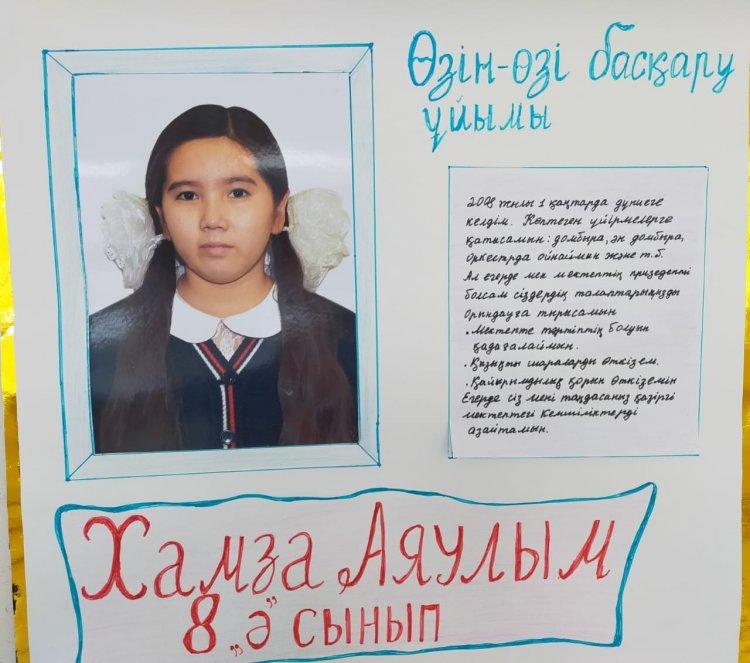 Өзін-өзі басқару
ұйымы
2008 жылы 1 қаңтарда дүниеге
келдім. Көптеген үйірмелерге
қатысамын: домбыра, ән домбыра,
оркестрда ойнаймын және т.б.
Ал егерде мен мектептің призеденті
болсам сіздердің талаптарыңызды
орындауға тырысамын
• Мектепте тәртіптің болуын
қадағалаймын.
• Қызықты шараларды өткізем.
• Қайырымдылық қорын өткіземін
Егерде сіз мені таңдасаңыз қазіргі
мектептегі кемшіліктерді
азайтамын.
Хамза Аяулым
8 „ә” сынып